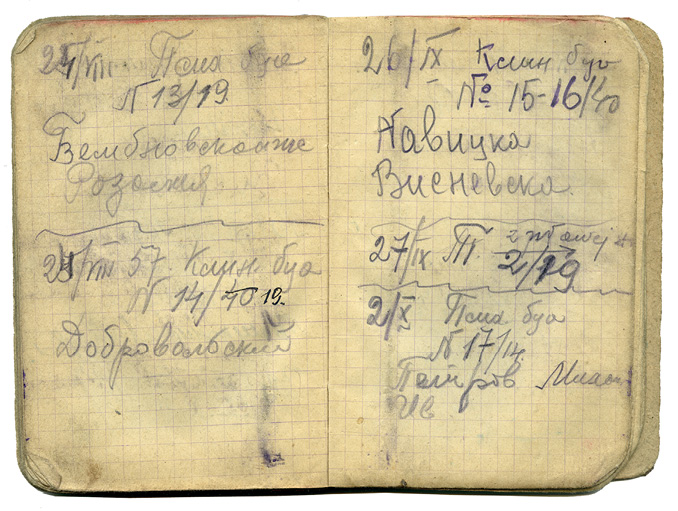 24/VIII. Псих буо
N 13/19
Бембновскайте
Розалия.
24/VIII 57. Клин буо
N 14/40 19.
Добровольский
26/IX Клин буо
№ 15-16/40
Навицка
Висневска.
27/IX ТТ.
2/19
2/X Псих буо
N 17/14
Петров
Ив